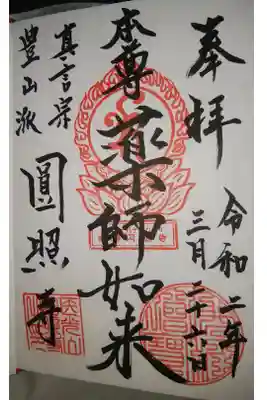 奉拝
令和二年
三月二十六日
本尊
薬師如来
真言宗
豊山派
圓照寺